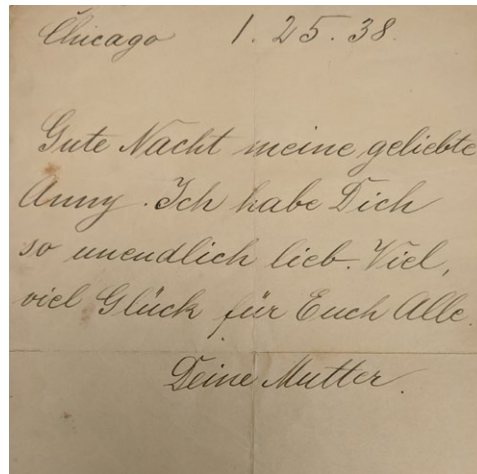 Chicago 1. 25. 38.
Gute Nacht meine geliebte
Anny. Ich habe Dich
so unendlich lieb. Viel,
viel Glück für Euch Alle.
Deine Mutter.